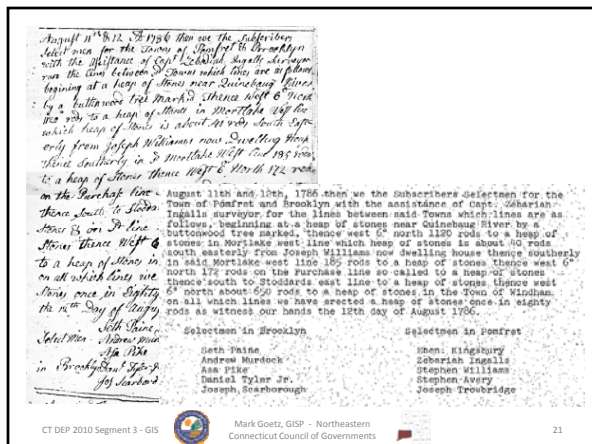 August 11th & 12 AD 1786 then we the Subscribers
Select men for the Towns of Pomfret & Brooklyn
with the assistance of Capt Zebariah Ingalls Surveyor
run the lines between sd Towns which lines are as follows
begining at a heap of Stones near Quinebaug River
by a buttonwood tree Markd Thence West 6° North
rods to a heap of Stones in Mortlake West line
which heap of Stones is about 40 rods South East-
erly from Joseph Williams now Dwelling House
thence Southerly in Sd Mortlake West line 185 rods
to a heap of Stones thence West 6° North 172 rods
on the Purchase line
thence South to Stodda
Stones
Stones thence West 6
to a heap of Stones in
on all which lines we
Stones once in Eighty
the 12th Day of Augu
Seth Paine
Select Men Andrew Mur
Asa Pike
in Brooklyn Danl Tyler Jr
Jos Scarboro
August 11th and 12th, 1786 then we the Subscribers Selectmen for the
Town of Pomfret and Brooklyn with the assistance of Capt. Zebariah
Ingalls surveyor for the lines between said Towns which lines are as
follows, beginning at a heap of stones near Quinebaug River by a
buttonwood tree marked, thence west 6° north 1120 rods to a heap of
stones in Mortlake west line which heap of stones is about 40 rods
south easterly from Joseph Williams now dwelling house thence southerly
in said Mortlake west line 185 rods to a heap of stones thence west 6°
north 172 rods on the Purchase line so called to a heap of stones
thence south to Stoddards east line to a heap of stones thence west
6° north about 650 rods to a heap of stones in the Town of Windham.
on all which lines we have erected a heap of stones once in eighty
rods as witness our hands the 12th day of August 1786.
Selectmen in Brooklyn Selectmen in Pomfret
Seth Paine Eben: Kingsbury
Andrew Murdock Zebariah Ingalls
Asa Pike Stephen Williams
Daniel Tyler Jr. Stephen Avery
Joseph Scarborough Joseph Trowbridge
CT DEP 2010 Segment 3 - GIS
Mark Goetz, GISP - Northeastern
Connecticut Council of Governments
21